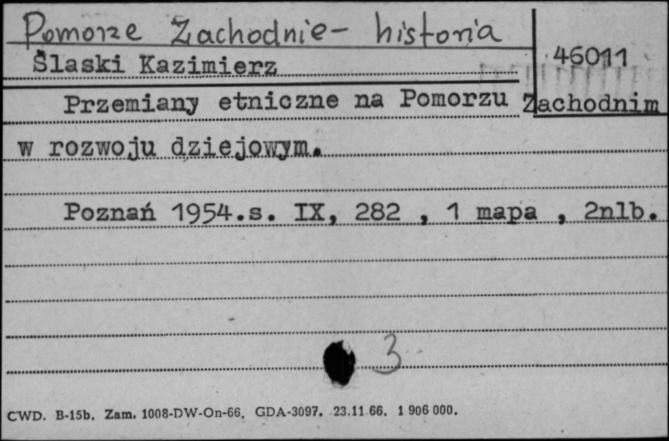 Pomorze Zachodnie - historia
46011
Ślaski Kazimierz
Przemiany etniczne na Pomorzu Zachodnim
w rozwoju dziejowym.
Poznań 1954.s. IX, 282 , 1 mapa , 2nlb.
3
CWD. B-15b. Zam. 1008-DW-On-66. GDA-3097. 23.11.66. 1 906 000.